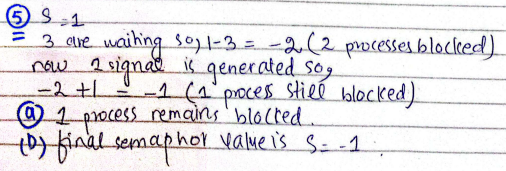 ⑤ S = 1
3 are waiting so, 1-3 = -2 (2 processes blocked)
now 1 signal is generated so,
-2 +1 = -1 (1 proces still blocked)
ⓐ 1 process remains blocked.
(b) final semaphor value is S = -1.